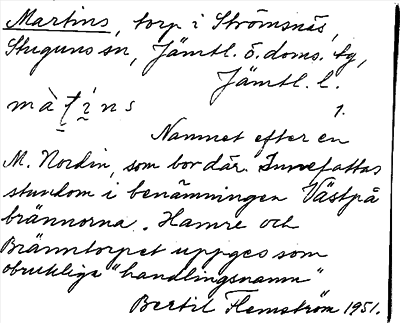 Martins, torp i Strömsnäs,
Stuguns sn, Jämtl. ö. doms. tg,
Jämtl. l.
màṭíns
1.
Namnet efter en
M. Nordin, som bor där. Innefattas
stundom i benämningen Västpå
brännorna. Hamre och
Bränntorpet uppges som
obrukliga "handlingsnamn"
Bertil Flemström 1951.